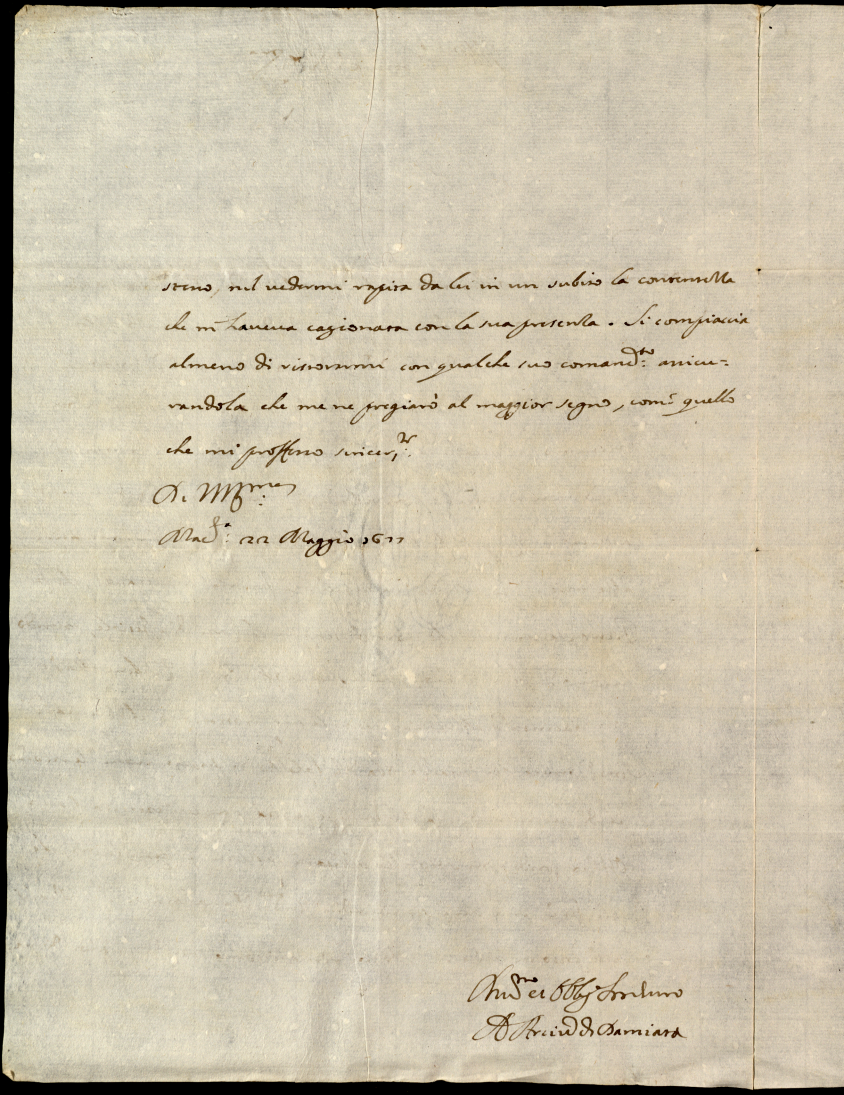 steno, nel vedermi rapita da lei in un subito la contentezza
che m'haueua cagionata con la sua presenza. Si compiaccia
almeno di ristorarmi con qualche suo comand.to assicu=
randola che me ne pregiarò al maggior segno, come quello
che mi professo sincer.te
Di
Mad.: 22 Maggio 1677
et Obblig.
Arciu. di Damiata